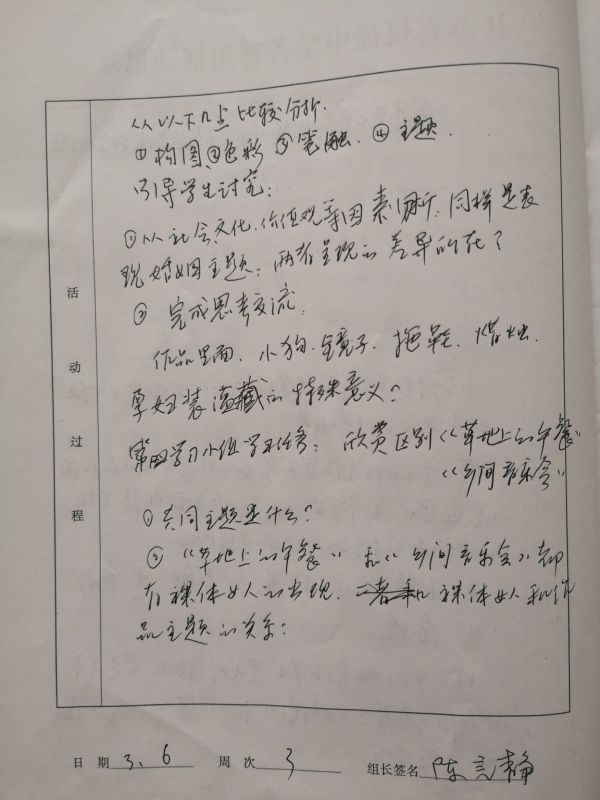 从以下几点比较分析.
①构图②色彩③笔触.④主题.
引导学生讨究:
①从社会文化.价值观等因素分析.同样是表
现婚姻主题,两者呈现的差异的在?
② 完成思考交流.
作品里面.小狗.镜子.拖鞋.蜡烛.
孕妇装蕴藏的特殊意义?
第四学习小组学习任务:欣赏区别《草地上的午餐》
《乡间音乐会》
①共同主题是什么?
②《草地上的午餐》和《乡间音乐会》都
有裸体女人的出现.裸体女人和作
品主题的关系:
活动过程
日期 3.6 周次 3 组长签名 陈 静